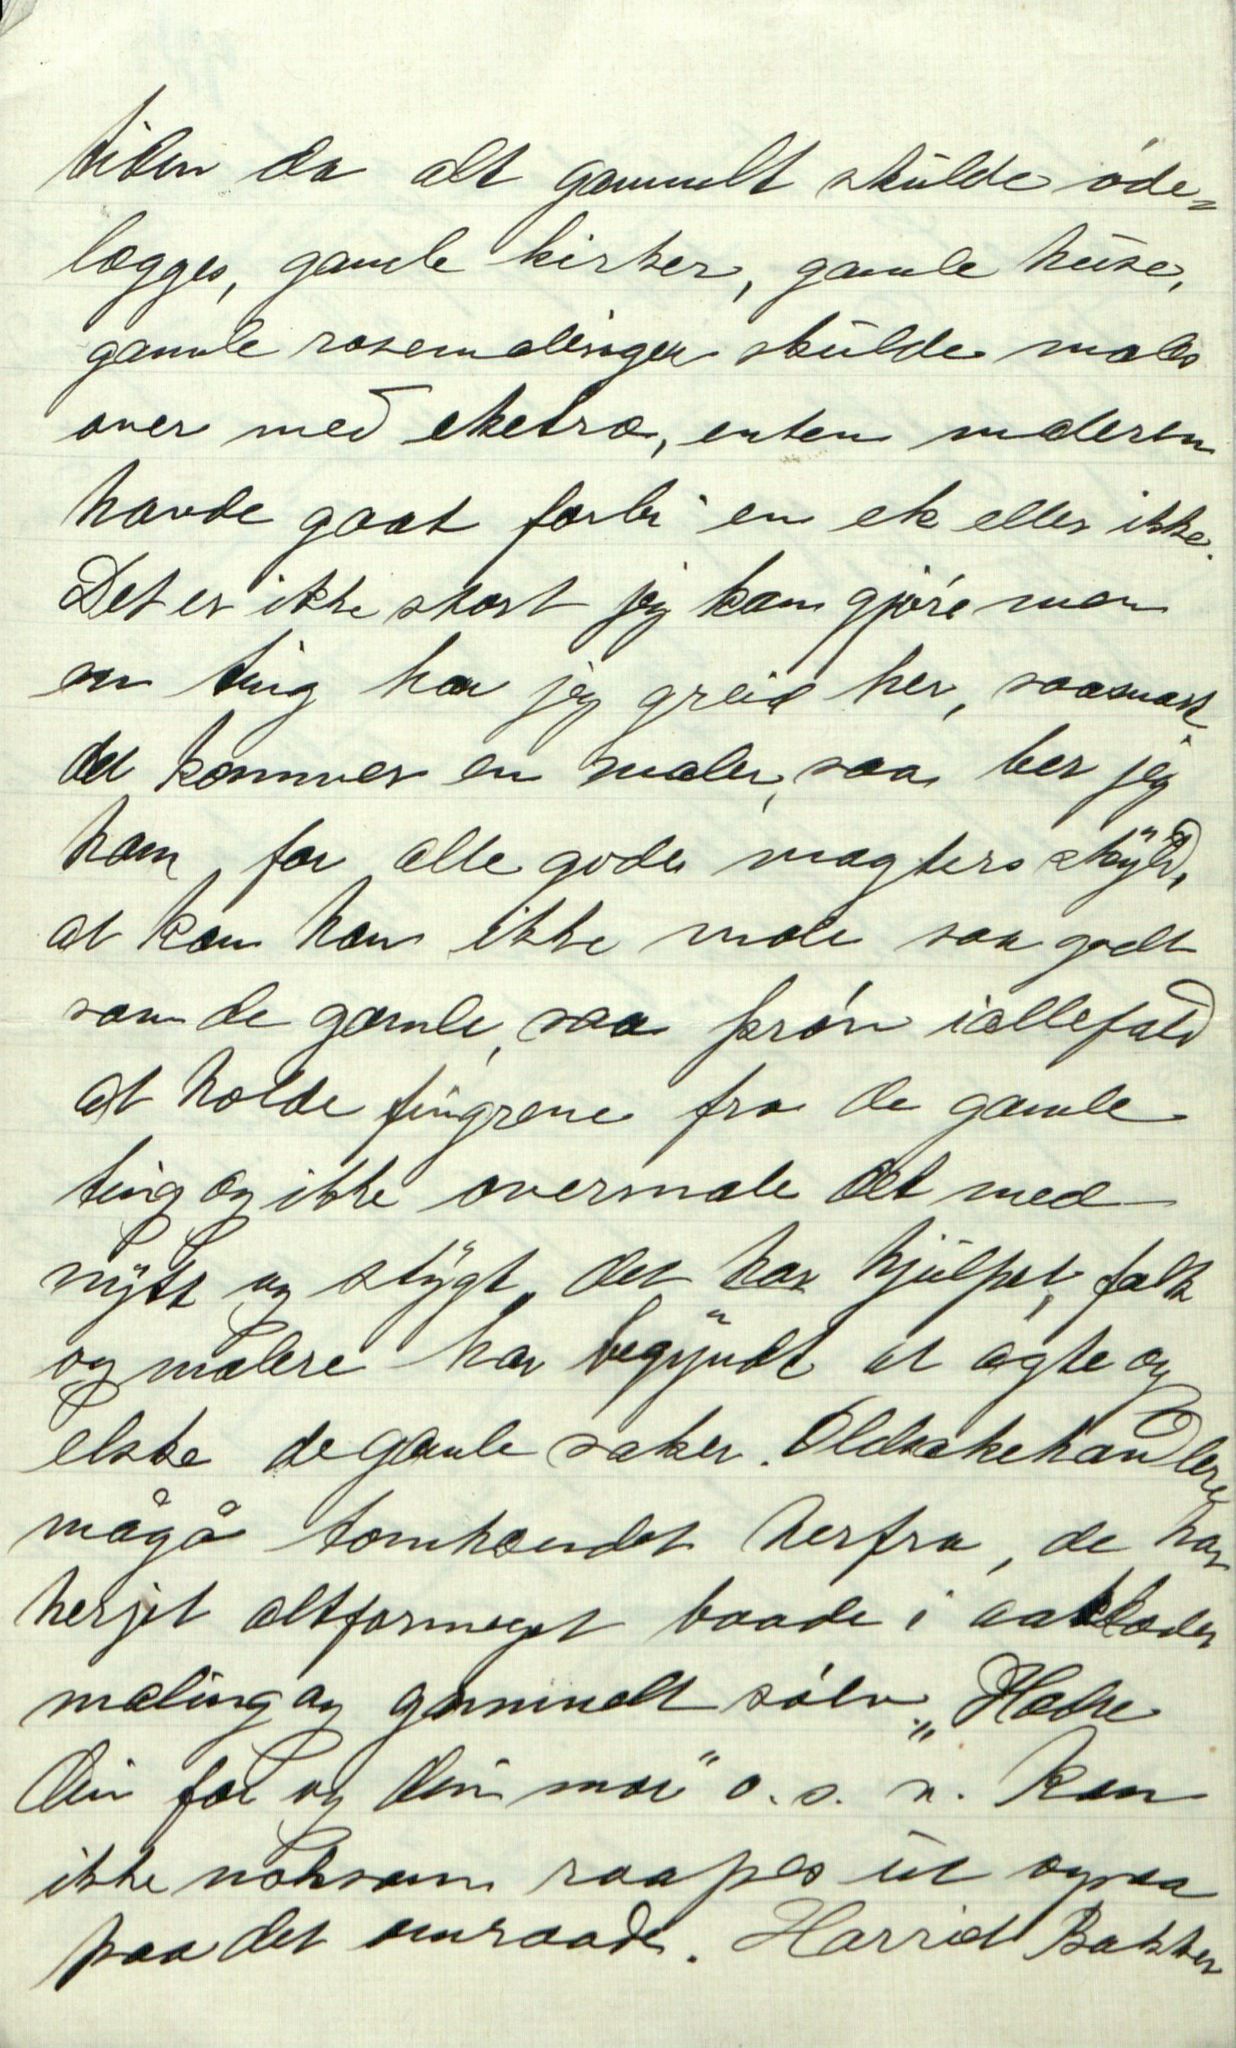 tiden da alt gammelt skulde øde-
lægges, gamle kirker, gamle huse,
gamle rosemalinger skulde males
over med eketræ, enten maleren
havde gaat forbi en ek eller ikke.
Det er ikke stort jeg kan gjøre men
en ting har jeg greid her, saasnart
det kommer en maler, saa ber jeg
ham for alle gode magters skyld,
at kan han ikke male saa godt
som de gamle, saa prøv iallefald
at holde fingrene fra de gamle
ting og ikke overmale det med
nytt og stygt, det har hjulpet, folk
og malere har begyndt at agte og
elske de gamle saker. Oldsakehandlere
må gå tomhændet herfra, de har
herjet altformeget baade i aaklæder
maling og gammelt sølv. „Hædre
din far og din mor" o. s. v. kan
ikke noksom raapes ut ogsaa
paa det omraade. Harriet Bakker